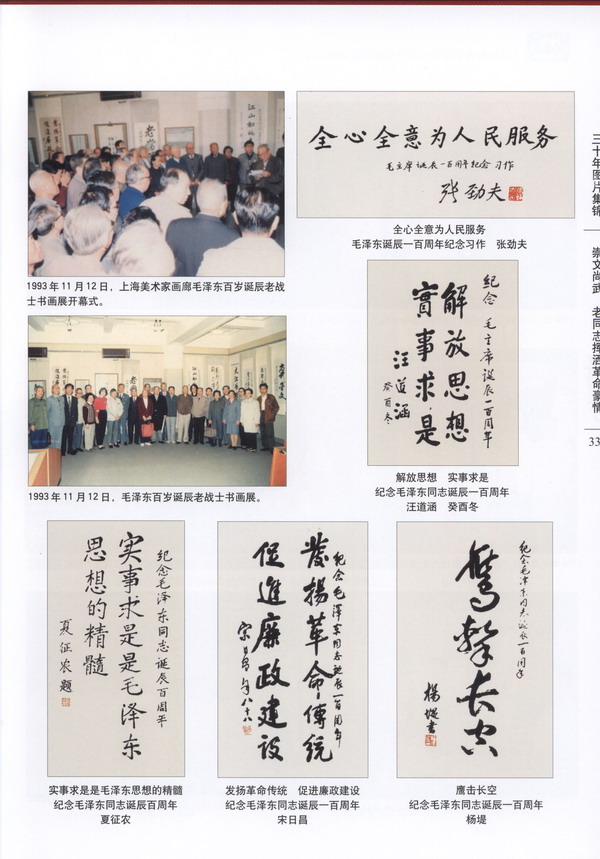 全心全意为人民服务
毛主席诞辰一百周年纪念 习作
张劲夫
全心全意为人民服务
毛泽东诞辰一百周年纪念习作 张劲夫
1993年11月12日，上海美术家画廊毛泽东百岁诞辰老战
士书画展开幕式。
纪念 毛主席诞辰一百周年
解放思想
實事求是
汪道涵
癸酉冬
解放思想 实事求是
纪念毛泽东同志诞辰一百周年
汪道涵 癸酉冬
1993年11月12日，毛泽东百岁诞辰老战士书画展。
纪念毛泽东同志诞辰百周年
实事求是是毛泽东
思想的精髓
夏征农题
实事求是是毛泽东思想的精髓
纪念毛泽东同志诞辰百周年
夏征农
纪念毛泽东同志诞辰一百周年
發揚革命傳統
促進廉政建设
宋日昌 年八十八
发扬革命传统 促进廉政建设
纪念毛泽东同志诞辰一百周年
宋日昌
纪念毛泽东同志诞辰一百周年
鹰擊长空
楊堤書
鹰击长空
纪念毛泽东同志诞辰一百周年
杨堤
三十年图片集锦
崇文尚武 老同志挥洒革命豪情
33